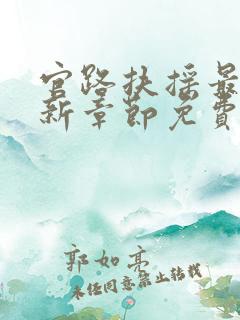 官路扶摇最
新章节免费
郭如亮
未经同意禁止转载